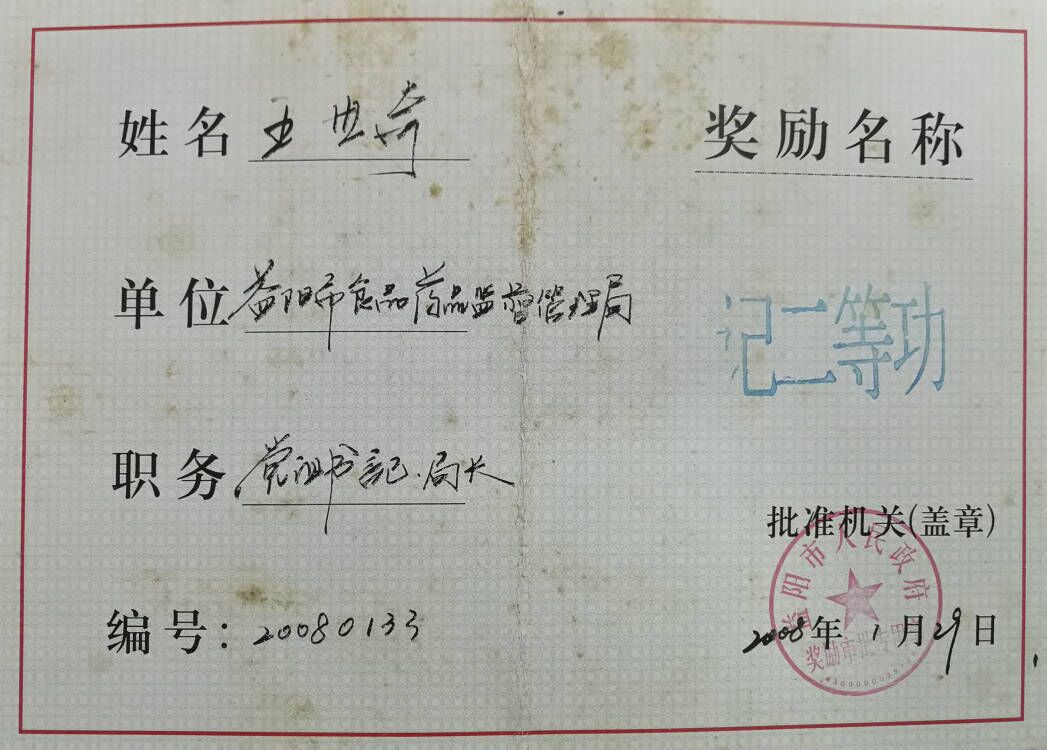 姓名 王世奇
单位 益阳市食品药品监督管理局
职务 党组书记、局长
编号：20080133
奖励名称
记二等功
批准机关(盖章)
益阳市人民政府
奖励审批专用
2008年1月29日